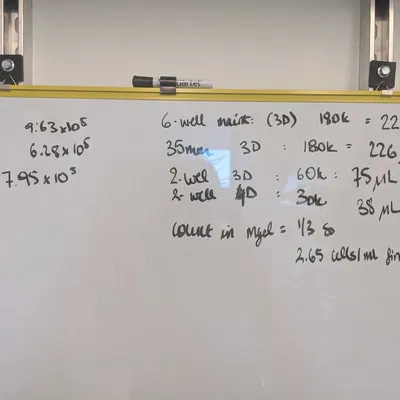 9.63x10⁵
6.28x10⁵
7.95x10⁵
6-well maint: (3D) 180k = 22
35mm 3D : 180k = 226
2-well 3D : 60k : 75 µL
2-well 4D : 30k 38 µL
count in mgel = 1/3 so
2.65 cells/ml fin